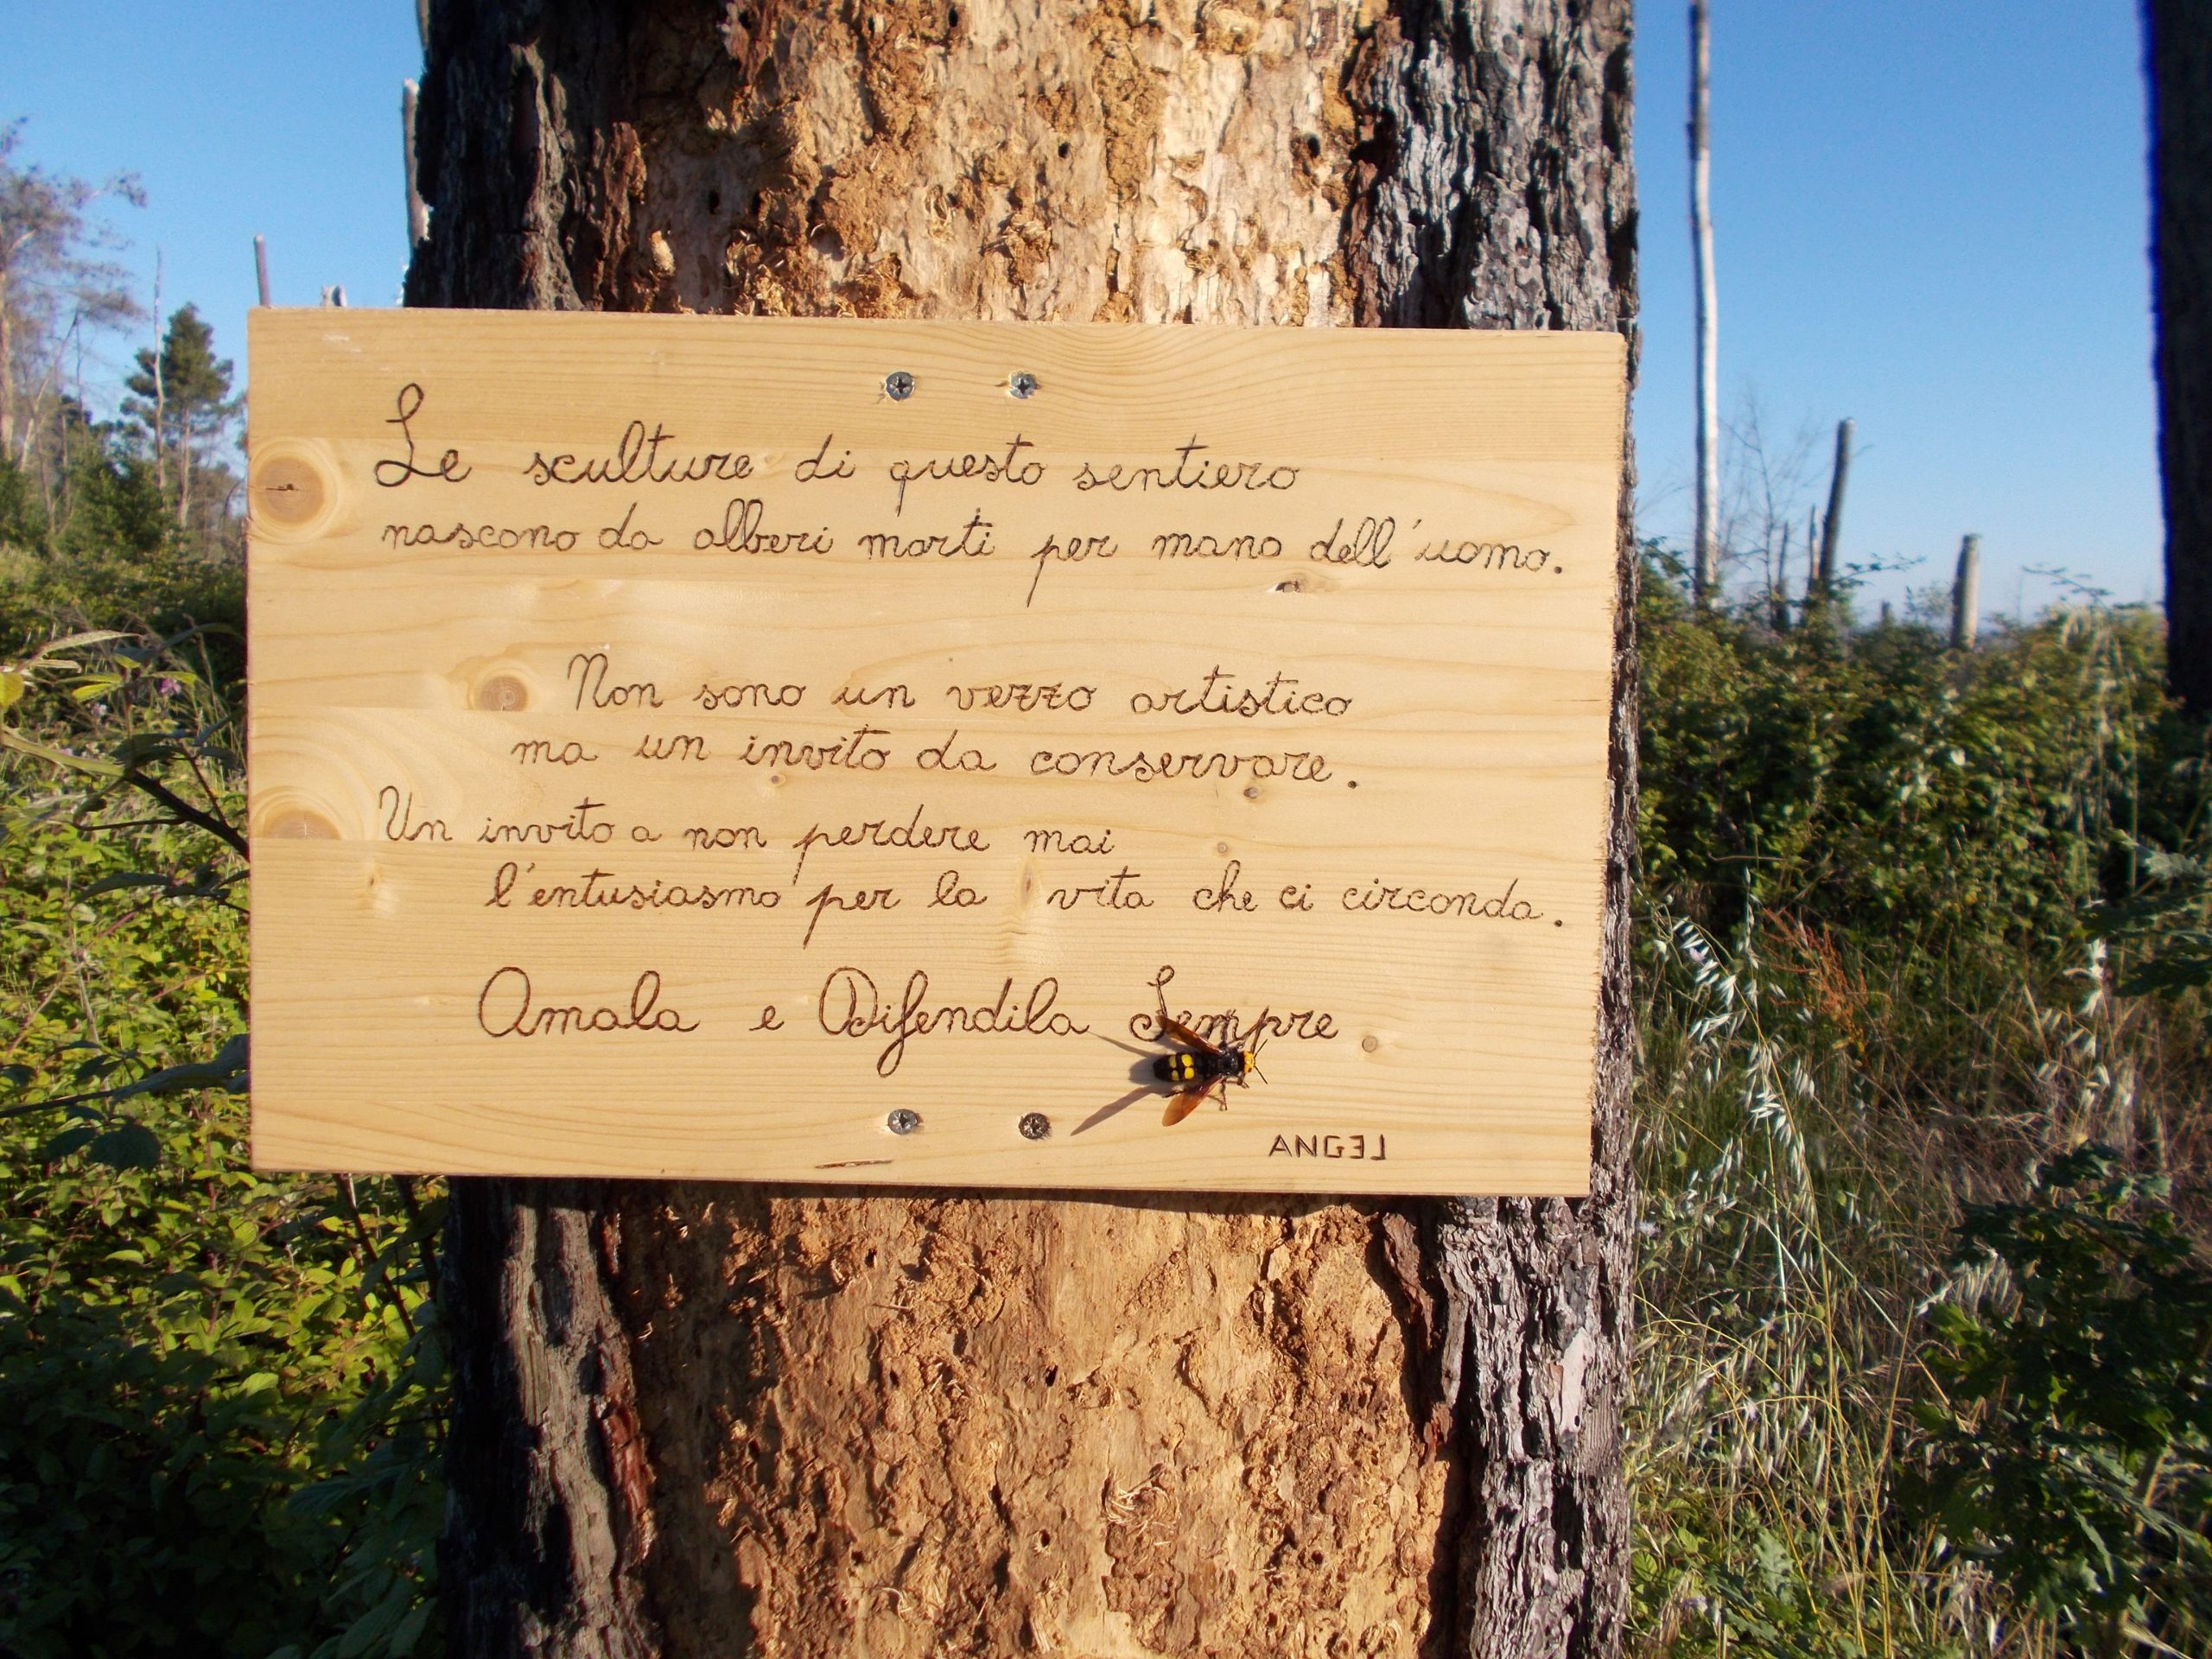 Le sculture di questo sentiero
nascono da alberi morti per mano dell'uomo.
Non sono un vezzo artistico
ma un invito da conservare.
Un invito a non perdere mai
l'entusiasmo per la vita che ci circonda.
Amala e Difendila Sempre
ANGEL